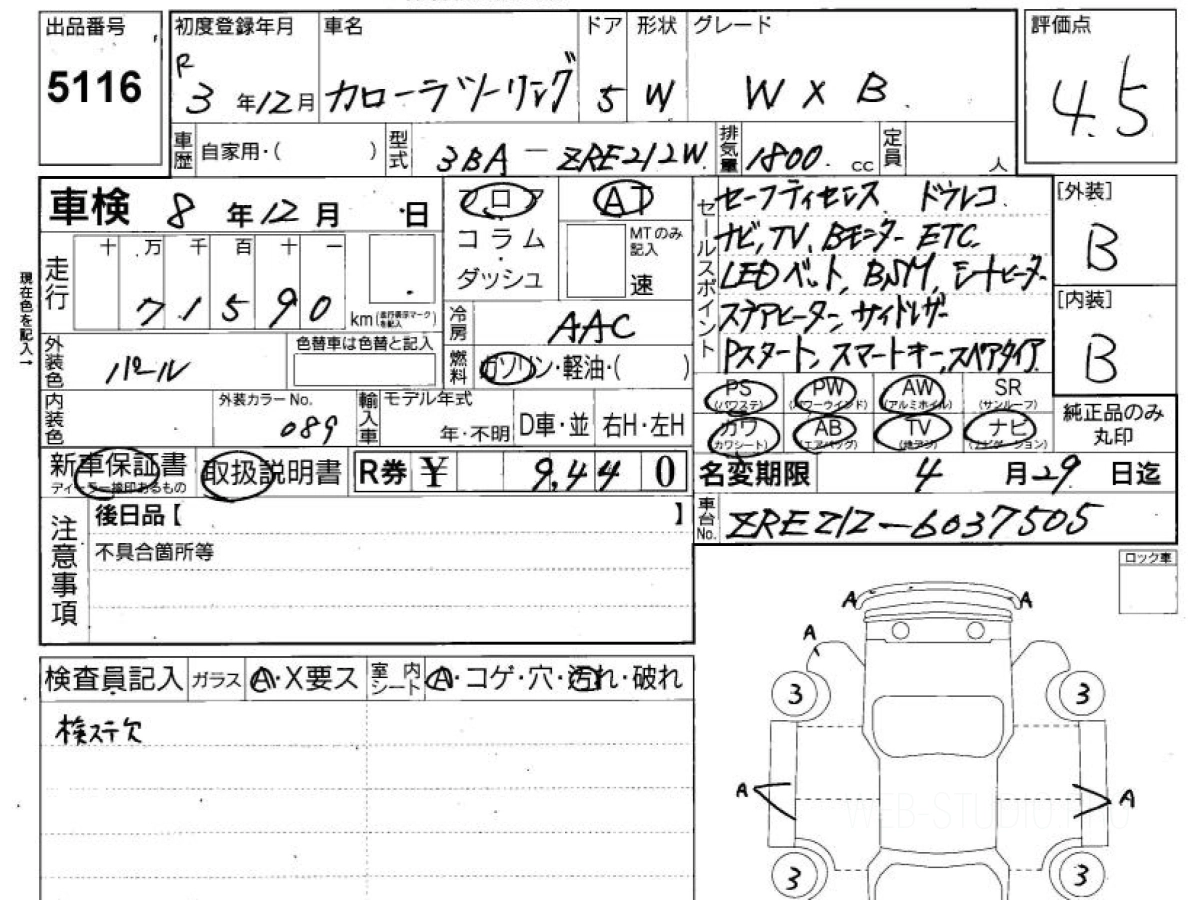 出品番号 5116
初度登録年月 R 3年12月
車名 カローラツーリング
ドア 5
形状 W
グレード W X B
評価点 4.5
車歴 自家用・( )
型式 3BA-ZRE212W
排気量 1800 cc
定員 人
車検 8年12月 日
フロア・コラム・ダッシュ
AT
MTのみ記入 速
セールスポイント
セーフティセンス ドラレコ
ナビ,TV,Bモニター ETC.
LEDヘット,BSM,シートヒーター
ステアヒーター,サイドレザー
Pスタート,スマートキー,スペアタイア
[外装] B
[内装] B
現在色を記入→
走行 十万千百十一
71590 km(走行表示マークを記入)
冷房 AAC
外装色 パール
色替車は色替と記入
燃料 ガソリン・軽油・( )
内装色
外装カラーNo. 089
輸入車 モデル年式 年・不明
D車・並 右H・左H
PS(パワステ) PW(パワーウインド) AW(アルミホイル) SR(サンルーフ)
カワ(カワシート) AB(エアバッグ) TV(地デジ) ナビ(ナビゲーション)
純正品のみ丸印
新車保証書 ディーラー捺印あるもの
取扱説明書
R券 ¥ 9,440
名変期限 4月29日迄
車台No. ZRE212-6037505
注意事項
後日品【 】
不具合箇所等
ロック車
検査員記入
ガラス A・X要ス
室内シート A・コゲ・穴・汚れ・破れ
検ステ欠
A A
A
3 3
A A
3 3
WEB-STUDIO.PRO